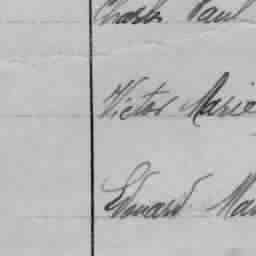 Charles Paul
Victor Marie
Edouard Mar